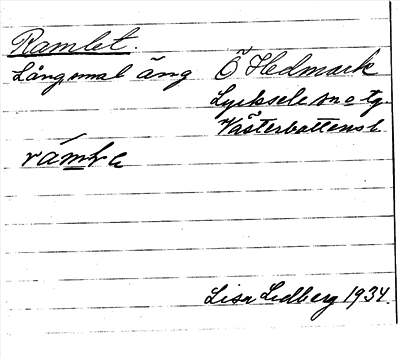 Ramlet.
Långsmal äng Ö Hedmark
Lycksele sn o tg.
Västerbottens l.
Lisa Lidberg 1934.